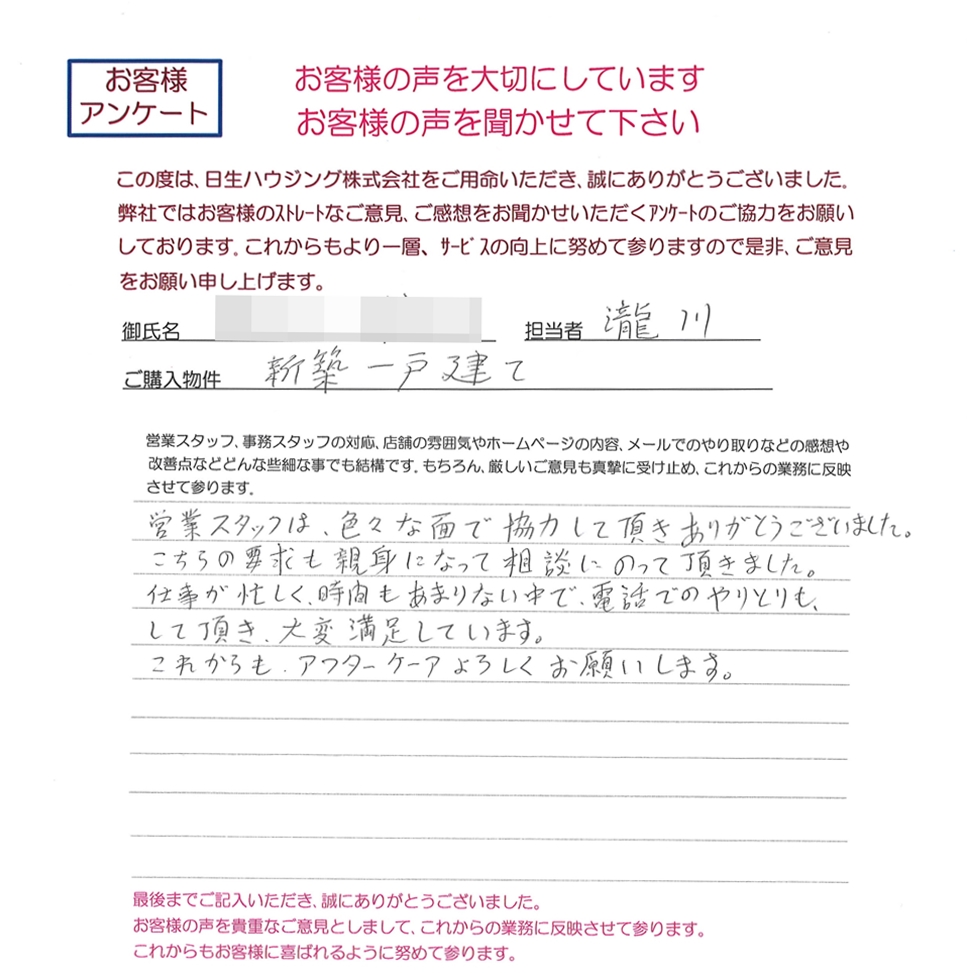 お客様
アンケート
お客様の声を大切にしています
お客様の声を聞かせて下さい
この度は、日生ハウジング株式会社をご用命いただき、誠にありがとうございました。
弊社ではお客様のｽﾄﾚｰﾄなご意見、ご感想をお聞かせいただくｱﾝｹｰﾄのご協力をお願い
しております。これからもより一層、ｻｰﾋﾞｽの向上に努めて参りますので是非、ご意見
をお願い申し上げます。
御氏名 担当者 瀧川
ご購入物件 新築一戸建て
営業スタッフ、事務スタッフの対応、店舗の雰囲気やホームページの内容、メールでのやり取りなどの感想や
改善点などどんな些細な事でも結構です。もちろん、厳しいご意見も真摯に受け止め、これからの業務に反映
させて参ります。
営業スタッフは、色々な面で協力して頂きありがとうございました。
こちらの要求も親身になって相談にのって頂きました。
仕事が忙しく、時間もあまりない中で、電話でのやりとりも、
して頂き、大変満足しています。
これからも、アフターケーアよろしくお願いします。
最後までご記入いただき、誠にありがとうございました。
お客様の声を貴重なご意見としまして、これからの業務に反映させて参ります。
これからもお客様に喜ばれるように努めて参ります。